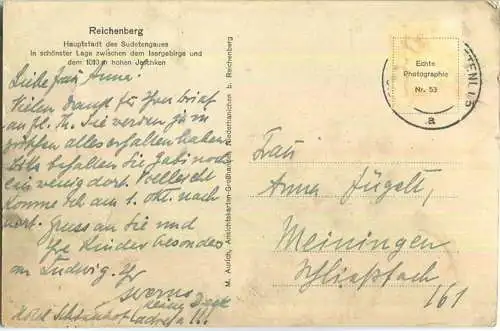 Reichenberg
Hauptstadt des Sudetengaues
in schönster Lage zwischen dem Isergebirge und
dem 1010 m hohen Jeschken
Liebe Frau Anna.
Vielen Dank für Ihren Brief
an Frl. Th. Sie werden ja in
zwischen alles erhalten haben.
Bitte behalten Sie Gabi noch
ein wenig dort. Vielleicht
komme ich am 1. Okt. nach
dort. Gruss an Sie und
Ihre Kinder besonders
an Ludwig. Ihr
M. Aurich, Ansichtskarten-Großhandlg. Niederhanichen b. Reichenberg
Echte
Photographie
Nr. 53
a
Frau
Anna Jügelt,
Meiningen
Schließfach
161